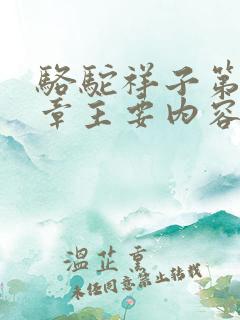 骆驼祥子第
章主要内容
温芷熏
未经同意禁止转载